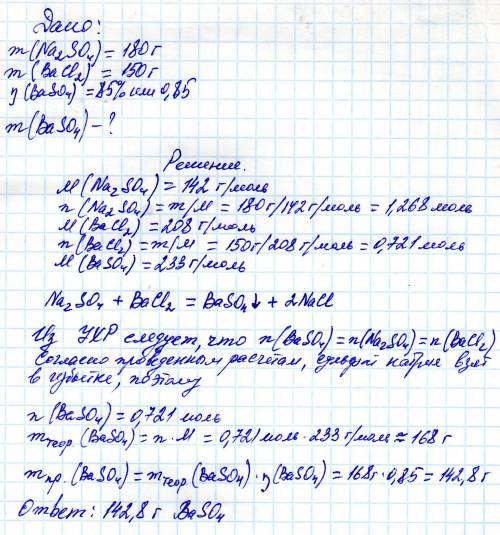 Дано:
m(Na₂SO₄) = 180 г
m(BaCl₂) = 150 г
η(BaSO₄) = 85% или 0,85
m(BaSO₄) - ?
Решение.
M(Na₂SO₄) = 142 г/моль
n(Na₂SO₄) = m/M = 180 г/142 г/моль = 1,268 моль
M(BaCl₂) = 208 г/моль
n(BaCl₂) = m/M = 150 г/208 г/моль = 0,721 моль
M(BaSO₄) = 233 г/моль
Na₂SO₄ + BaCl₂ = BaSO₄↓ + 2NaCl
Из УХР следует, что n(BaSO₄) = n(Na₂SO₄) = n(BaCl₂)
Согласно проведенным расчетам, сульфат натрия взят
в избытке, поэтому
n(BaSO₄) = 0,721 моль
mтеор.(BaSO₄) = n · M = 0,721 моль · 233 г/моль ≈ 168 г
mпр.(BaSO₄) = mтеор.(BaSO₄) · η(BaSO₄) = 168 г · 0,85 = 142,8 г
Ответ: 142,8 г BaSO₄